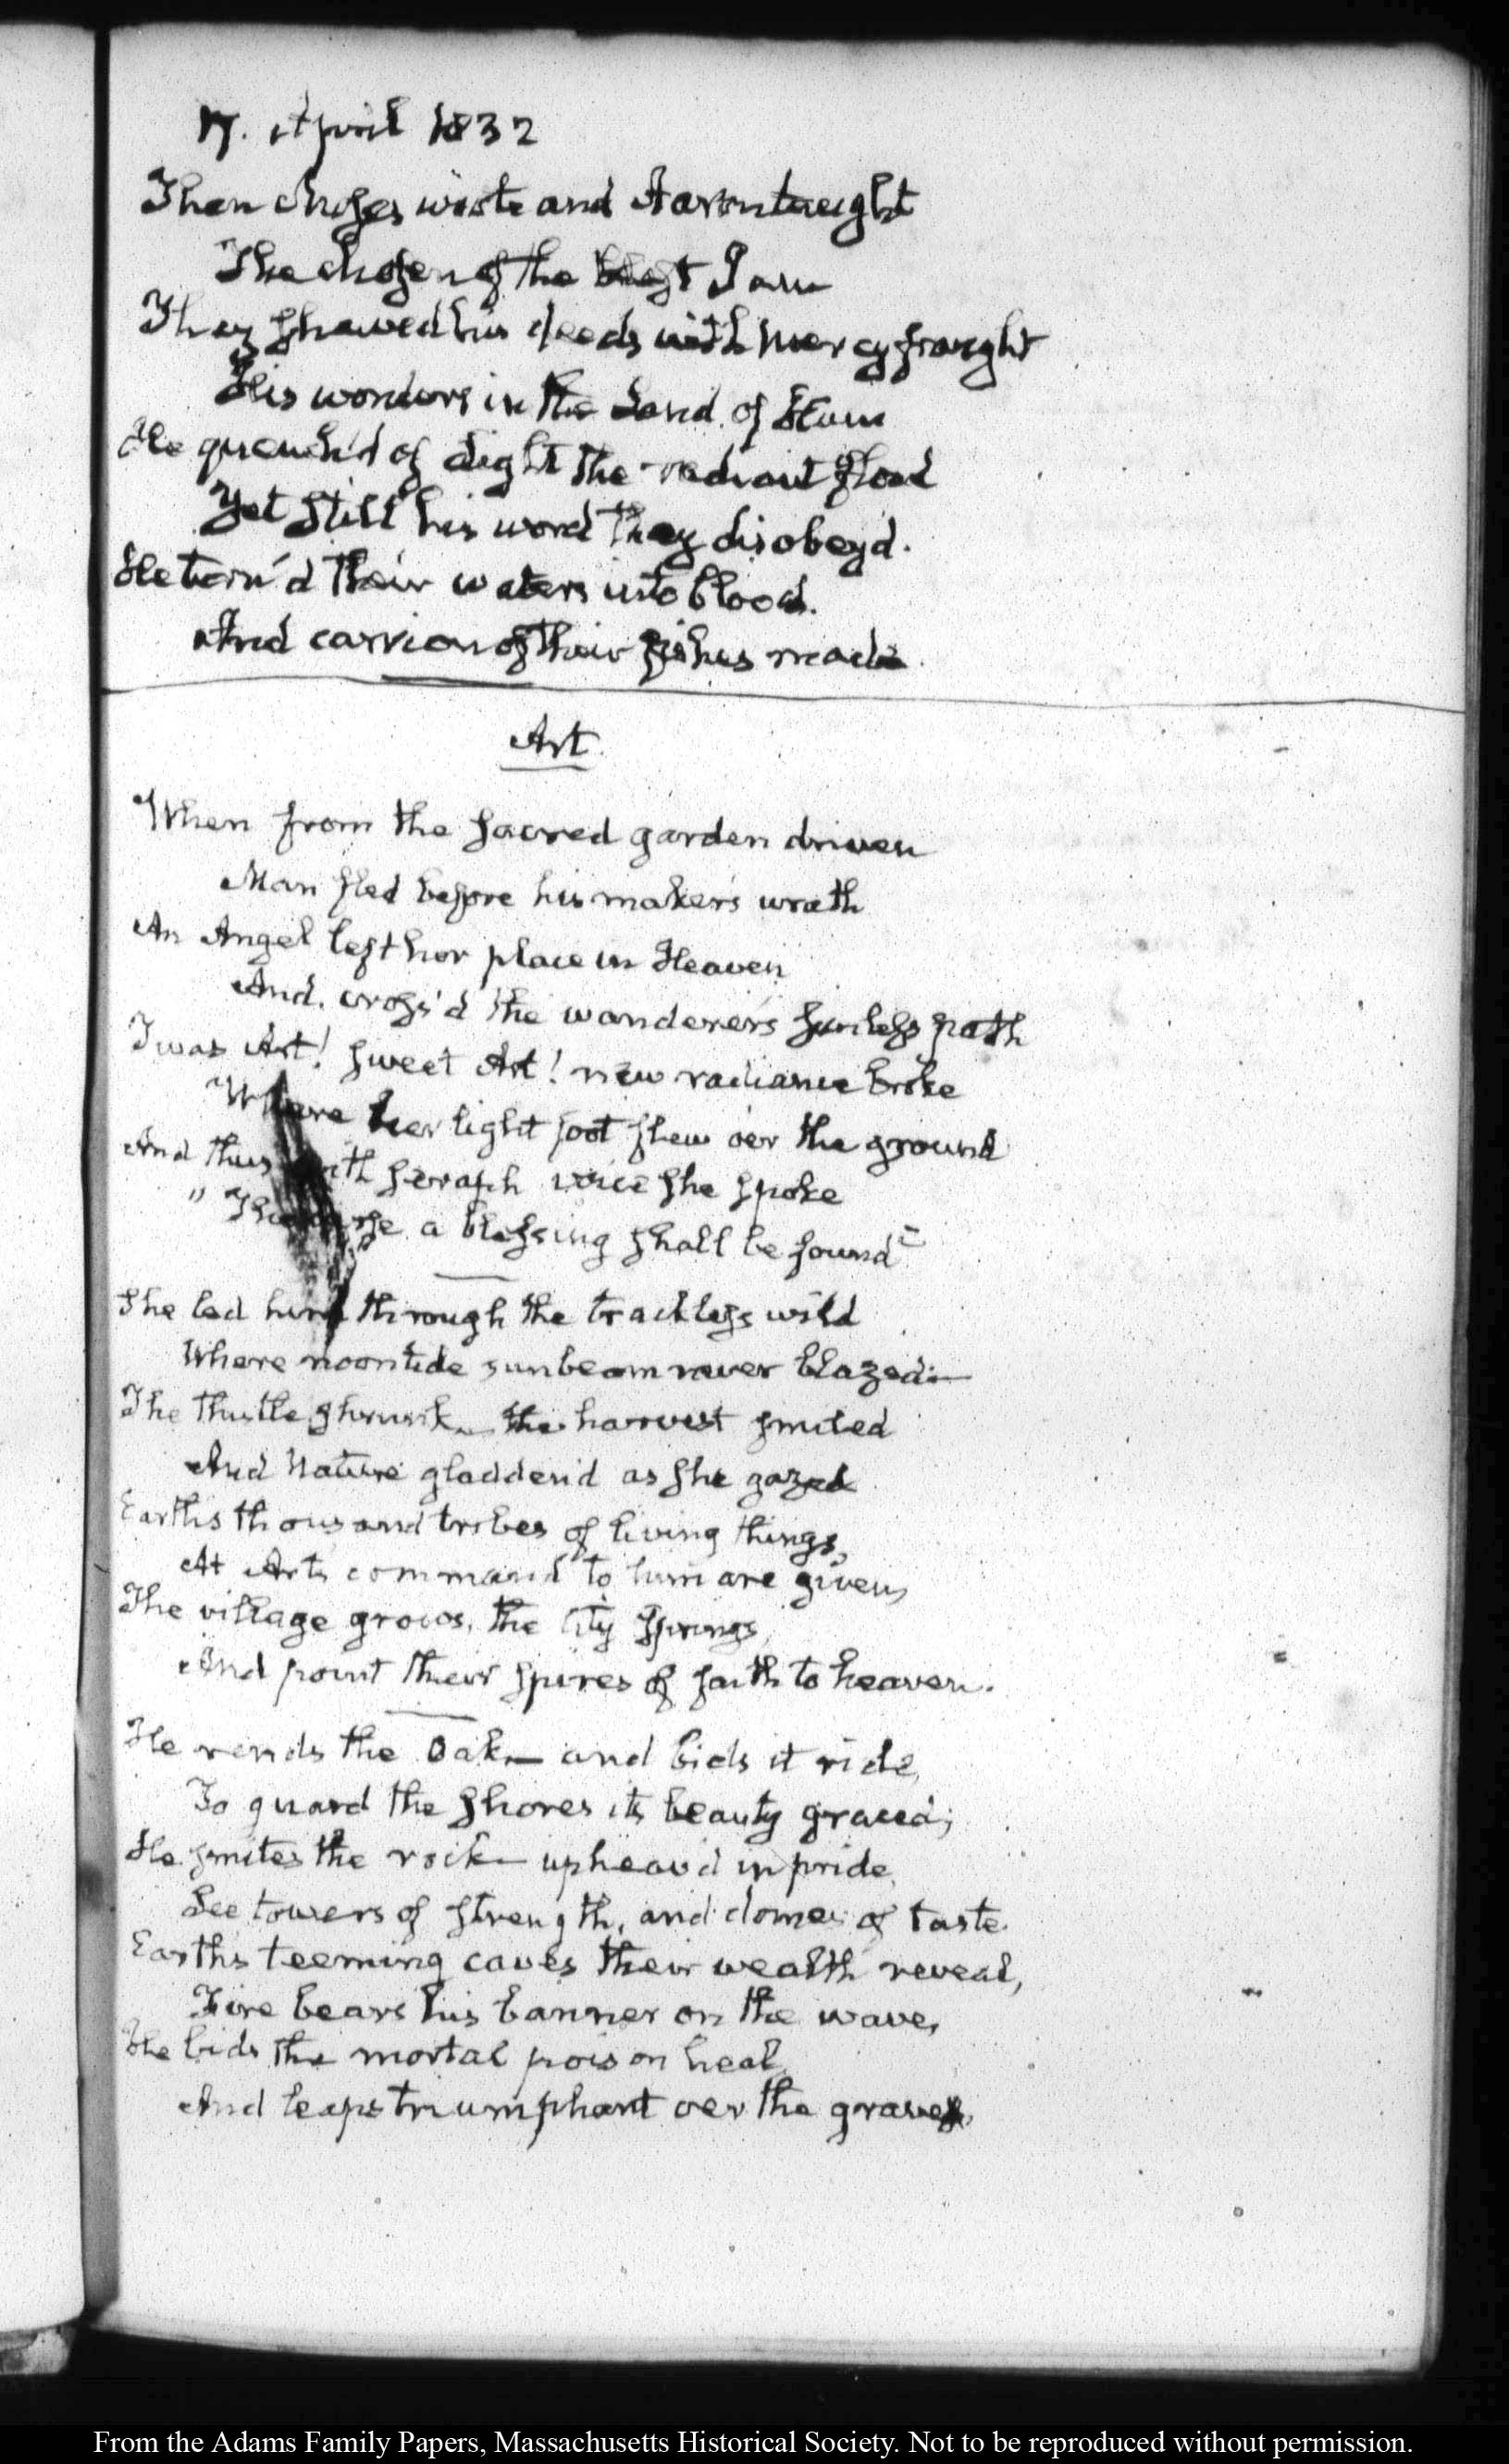 17. April 1832
Then Moses wrote and Aaron taught
The chosen of the blest I am
They shewed his deeds with mercy fraught
His wonders in the Land of Ham
He quench'd of Light the radiant flood
Yet still his word they disobey'd.
He turn'd their waters into blood.
And carrion of their fishes made.
Art.
When from the sacred garden driven
Man fled before his maker's wrath
An Angel left her place in Heaven
And cross'd the wanderer's sunless path
Twas Art! sweet Art! new radiance broke
Where her light foot flew o'er the ground
And thus with seraph voice she spoke
" The Curse a blessing shall be found"
She led him through the trackless wild
Where noontide sunbeam never blazed:—
The thistle shrunk — the harvest smiled
And Nature gladden'd as she gazed
Earth's thousand tribes of living things,
At Art's command to him are given,
The village grows, the City springs,
And point their spires of faith to heaven.
He rends the Oak — and bids it ride,
To guard the shores its beauty graced;
He smites the rock — upheav'd in pride,
See towers of strength, and domes of taste.
Earth's teeming caves their wealth reveal,
Fire bears his banner on the wave,
He bids the mortal poison heal,
And leaps triumphant o'er the grave.
From the Adams Family Papers, Massachusetts Historical Society. Not to be reproduced without permission.